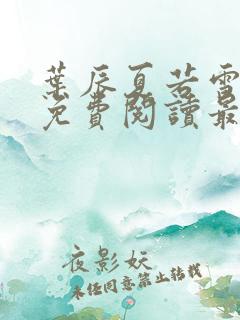 葉辰夏若雪
免費閱讀最
夜影妖
未經同意禁止轉載